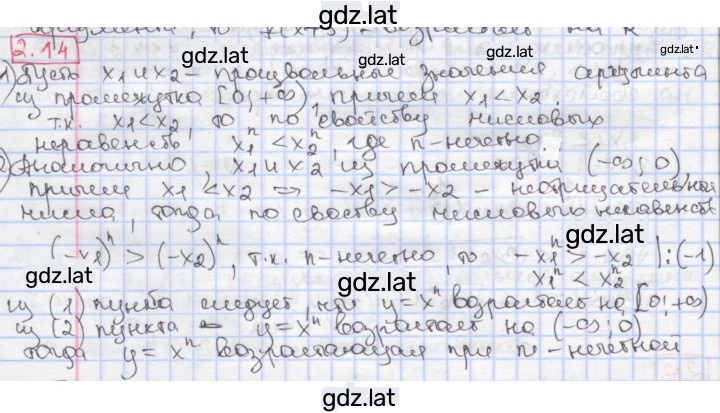 gdz.lat
2.14
gdz.lat
gdz.lat
1) Пусть x₁ и x₂ – произвольные значения аргумента
из промежутка [0; +∞), причем x₁ < x₂.
gdz.lat
т.к. x₁ < x₂, то по свойству числовых
неравенств x₁ⁿ < x₂ⁿ, где n - нечетно
2) Аналогично, x₁ и x₂ из промежутка (-∞; 0),
причем x₁ < x₂ ⇒ -x₁ > -x₂ - неотрицательные
числа, тогда по свойству числовых неравенств
gdz.lat
(-x₁)ⁿ > (-x₂)ⁿ, т.к. n - нечетно, то -x₁ⁿ > -x₂ⁿ |:(-1)
gdz.lat
x₁ⁿ < x₂ⁿ
gdz.lat
из (1) пункта следует, что y = xⁿ возрастает на [0; +∞)
из (2) пункта – y = xⁿ возрастает на (-∞; 0)
тогда y = xⁿ возрастающая при n - нечетной
gdz.lat
gdz.lat